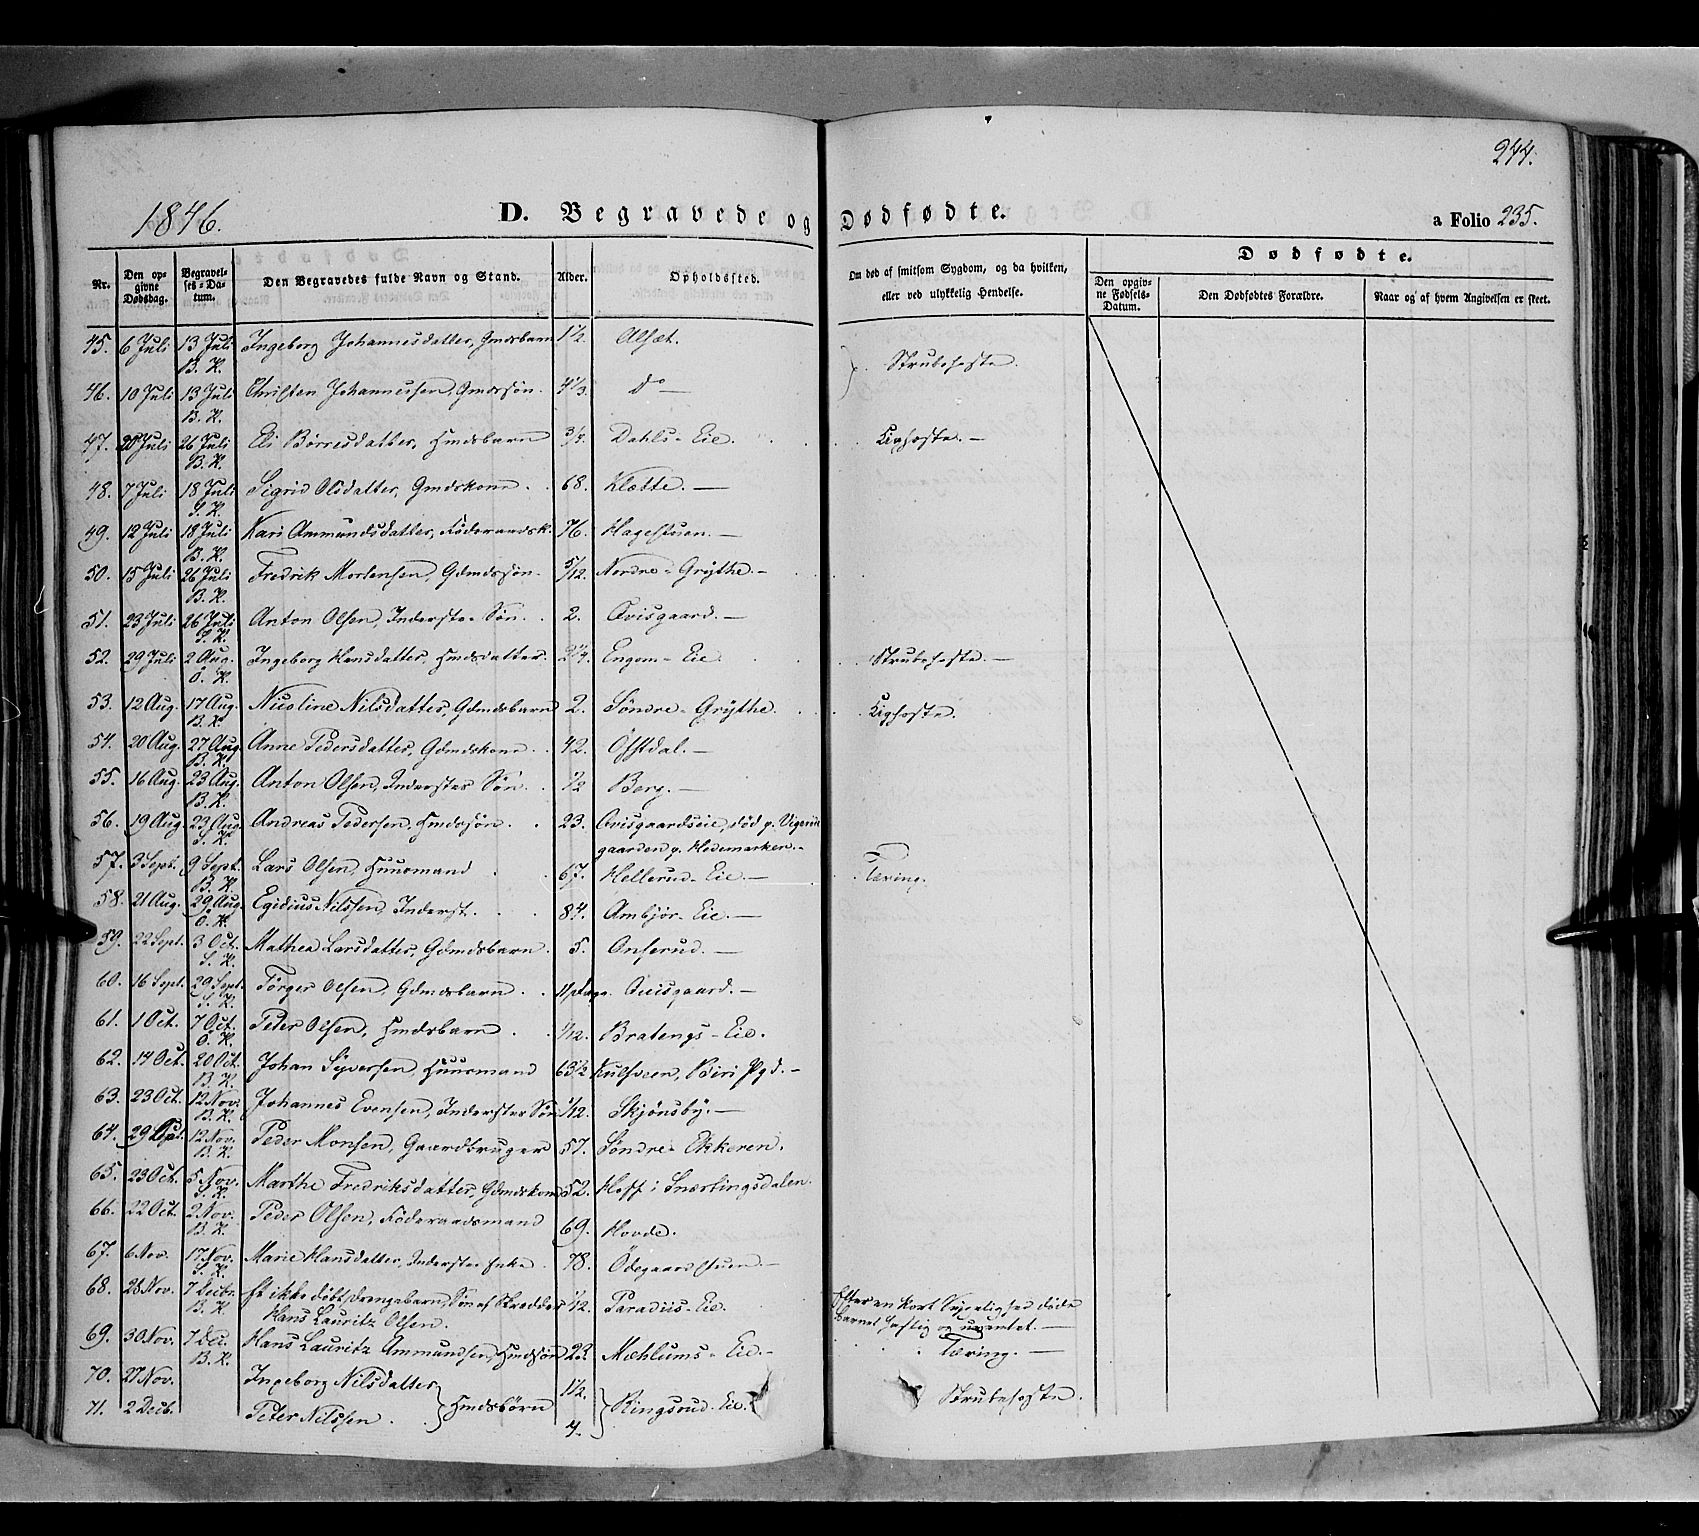 244.
1846.
D. Begravede og Dødfødte.
a Folio 235.
Nr.
Den opgivne Dødsdag.
Begravelses-Datum.
Den Begravedes fulde Navn og Stand.
Alder.
Opholdssted.
Om død af smitsom Sygdom, og da hvilken, eller ved ulykkelig Hendelse.
Dødfødte.
Den opgivne Fødsels-Datum.
Den Dødfødtes Forældre.
Naar og af hvem Angivelsen er skeet.
45. 6 Juli 13 Juli B. K. Ingeborg Johannesdatter, Gmdsbarn 1 1/2. Alsæt.
Strubehoste.
46. 10 Juli 13 Juli B. K. Christen Johannessen, Gmdssøn. 4 1/3. do —
47. 20 Juli 26 Juli B. K. Eli Børresdatter, Hmdsbarn 3/4. Dahls-Eie. Kighoste. —
48. 7 Juli 18 Juli S. K. Sigrid Olsdatter, Gmdskone. 68. Klætte. —
49. 12 Juli 18 Juli B. K. Kari Ammundsdatter, Föderaadsk. 76. Hagestuen. —
50. 15 Juli 26 Juli B. K. Fredrik Mortensen, Gdmdssøn. 5/12. Nordre-Grÿthe. —
51. 23 Juli 26 Juli S. K. Anton Olsen, Inderste-Søn. 2. Qvisgaard. —
52. 29 Juli 2 Aug. Ö. K. Ingeborg Hansdatter, Hmdsdatter. 2 1/4. Engom-Eie. Strubehoste. —
53. 12 Aug. 17 Aug. B. K. Nicoline Nilsdatter, Gdmdsbarn 2. Søndre-Grÿthe. Kighoste.
54. 20 Aug. 27 Aug. B. K. Anne Pedersdatter, Gdmdskone. 42. Öfstdal. —
55. 16 Aug. 23 Aug. B. K. Anton Olsen, Inderstes Søn. 1/2 Berg. —
56. 19 Aug. 23 Aug. S. K. Andreas Pedersen, Hmdssøn. 23. Qvisgaardseie, død p.
gaarden p. Hedemarken. —
57. 3 Sept. 9 Sept. B. K. Lars Olsen, Huusmand 67. Hellerud-Eie. — Tæring.
58. 21 Aug. 29 Aug. Ö. K. Egidius Nilssen, Inderst. 84. Ambjør-Eie. —
59. 22 Sept. 3 Oct. S. K. Mathea Larsdatter, Gdmdsbarn. 5. Onsrud. —
60. 16 Sept. 29 Sept. S. K. Törger Olsen, Gdmdsbarn. 11 Dage. Qvisgaard. —
61. 1 Oct. 7 Oct. Ö. K. Peter Olsen, Hmdsbarn 1/12. Bratengs-Eie.
62. 14 Oct. 20 Oct. B. K. Johan Syversen, Huusmand 63 1/2 Kulsveen, Biri Pgd. —
63. 23 Oct. 12 Nov. B. K. Johannes Evensen, Inderstes Søn 1/12. Skjønsby. —
64. 29 12 Nov. B. K. Peder Monsen, Gaardbruger 57. Søndre Ekkeren.
65. 23 Oct. 5 Nov. S. K. Marthe Fredriksdatter, Gdmdskone 52. Hoff i Snærtingsdalen.
66. 22 Oct. 2 Nov. B. K. Peder Olsen, Föderaadsmand 69. Hovde.
67. 6 Nov. 17 Nov. S. K. Marie Hansdatter, Inderste Enke. 78. Ödegaardstuen. —
68. 28 Nov. 7 Decbr. B. K. Et ikke døbt Drengebarn, Søn af Skredder 1/12. Paradiis-Eie. Efter en kort Sygelighed døde
Hans Lauritz Olsen. Barnet hæftig og uventet. —
69. 30 Nov. 7 Dec. B. K. Hans Lauritz Ammundsen, Hmdssøn 23. Mæhlums-Eie. — Tæring. —
70. 27 Nov. Ingeborg Nilsdatter 1 1/2.
Hmdsbørn Ringsrud-Eie. Strubehoste.
71. 2 Decb. Peter Nilssen. 4.